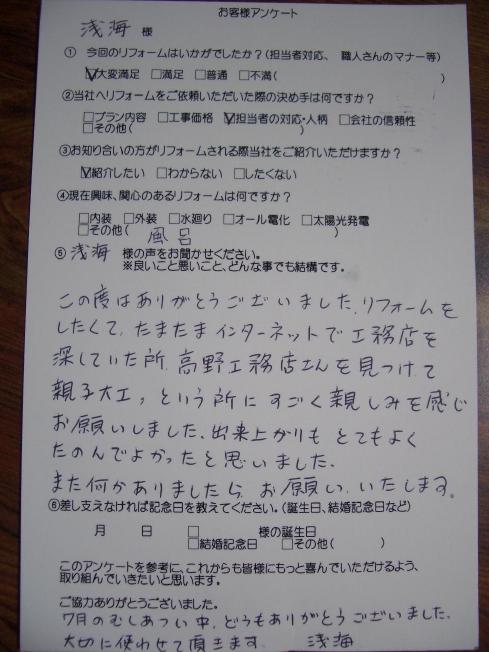 お客様アンケート
浅海 様
① 今回のリフォームはいかがでしたか？(担当者対応、 職人さんのマナー等)
☑大変満足 □満足 □普通 □不満( )
②当社へリフォームをご依頼いただいた際の決め手は何ですか？
□プラン内容 □工事価格 ☑担当者の対応・人柄 □会社の信頼性
□その他( )
③お知り合いの方がリフォームされる際当社をご紹介いただけますか？
☑紹介したい □わからない □したくない
④現在興味、関心のあるリフォームは何ですか？
□内装 □外装 □水廻り □オール電化 □太陽光発電
□その他( 風呂 )
⑤ 浅海 様の声をお聞かせください。
※良いこと悪いこと、どんな事でも結構です。
この度はありがとうございました。リフォームを
したくて、たまたまインターネットで工務店を
深していた所、高野工務店さんを見つけて
親子大工，という所にすごく親しみを感じ
お願いしました。出来上がりも とてもよく
たのんでよかったと思いました。
また何かありましたら、お願い、いたします。
⑥差し支えなければ記念日を教えてください。(誕生日、結婚記念日など)
月 日 □ 様の誕生日
□結婚記念日 □その他( )
このアンケートを参考に、これからも皆様にもっと喜んでいただけるよう、
取り組んでいきたいと思います。
ご協力ありがとうございました。
7月のむしあつい中、どうもありがとうございました。
大切に使わせて頂きます。 浅海